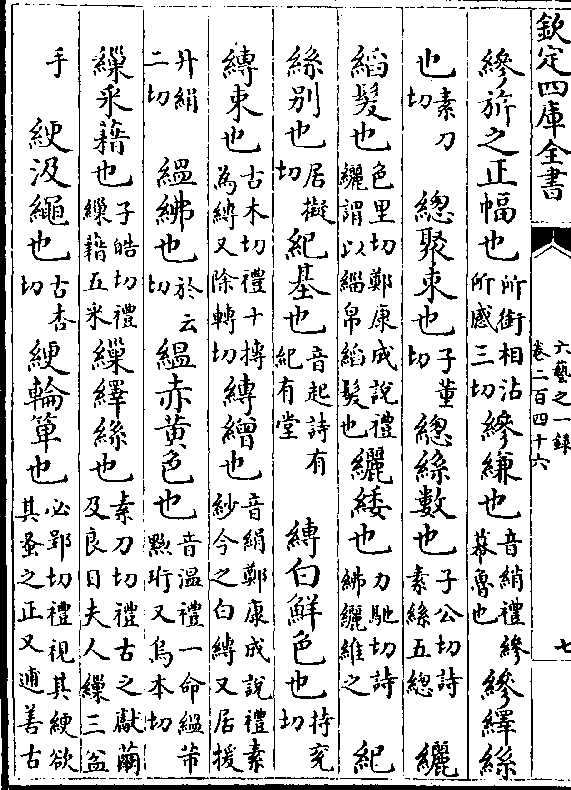 欽定四庫全書
六藝之一録
卷二百四十六
七
縿斿之正幅也所銜相沾所感三切縿縑也音綃禮縿幕魯也縿繹絲
也素刀切總聚束也子董切總絲數也子公切詩素絲五總纚
縚髮也色里切鄭康成說禮纚謂以緇帛縚髮也纚緌也力馳切詩紼纚維之紀
絲别也居擬切紀基也音起詩有紀有堂縳白鮮色也持兖切
縳束也古本切禮十摶為縳又除轉切縳繒也音絹鄭康成說禮素紗今之白縳又居援
升絹二切緼紼也於云切緼赤黄色也音温禮一命緼芾黝珩又烏本切
繅采藉也子皓切禮繅藉五采繅繹絲也素刀切禮古之獻繭及良日夫人繅三盆
手綆汲繩也古杏切綆輪箄也必郢切禮視其綆欲其蚤之正又逋善古